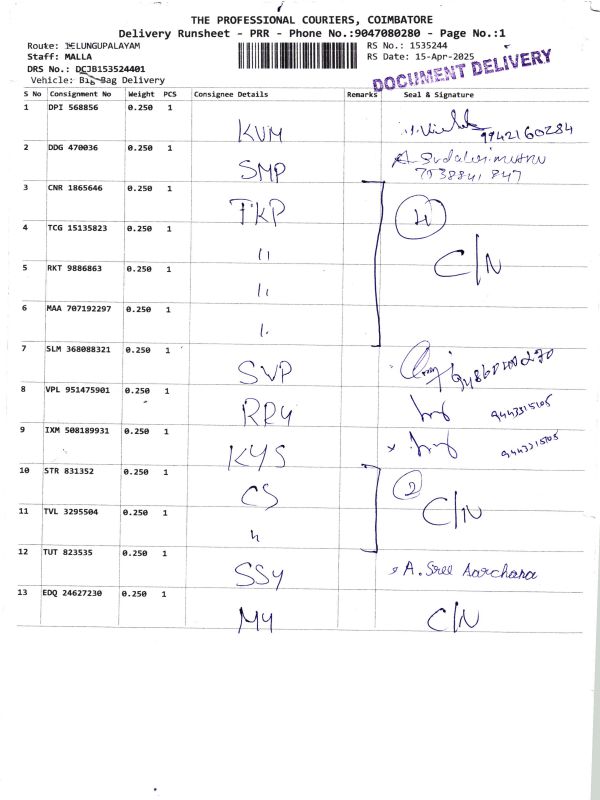 THE PROFESSIONAL COURIERS, COIMBATORE
Delivery Runsheet - PRR - Phone No.:9047080280 - Page No.:1
Route: TELUNGUPALAYAM
RS No.: 1535244
Staff: MALLA
RS Date: 15-Apr-2025
DRS No.: DCJB153524401
Vehicle: Big Bag Delivery
DOCUMENT DELIVERY
S No Consignment No Weight PCS Consignee Details Remarks Seal & Signature
1 DPI 568856 0.250 1 KVM 9942160284
2 DDG 470036 0.250 1 SMP
3 CNR 1865646 0.250 1 TKP 4 C/N
4 TCG 15135823 0.250 1 11
5 RKT 9886863 0.250 1 11
6 MAA 707192297 0.250 1
7 SLM 368088321 0.250 1 SVP
8 VPL 951475901 0.250 1 RRY 9443315105
9 IXM 508189931 0.250 1 KYS 9443315105
10 STR 831352 0.250 1 CS 2 C/N
11 TVL 3295504 0.250 1
12 TUT 823535 0.250 1 SSY A. Sree Aarchana
13 EDQ 24627230 0.250 1 MY C/N